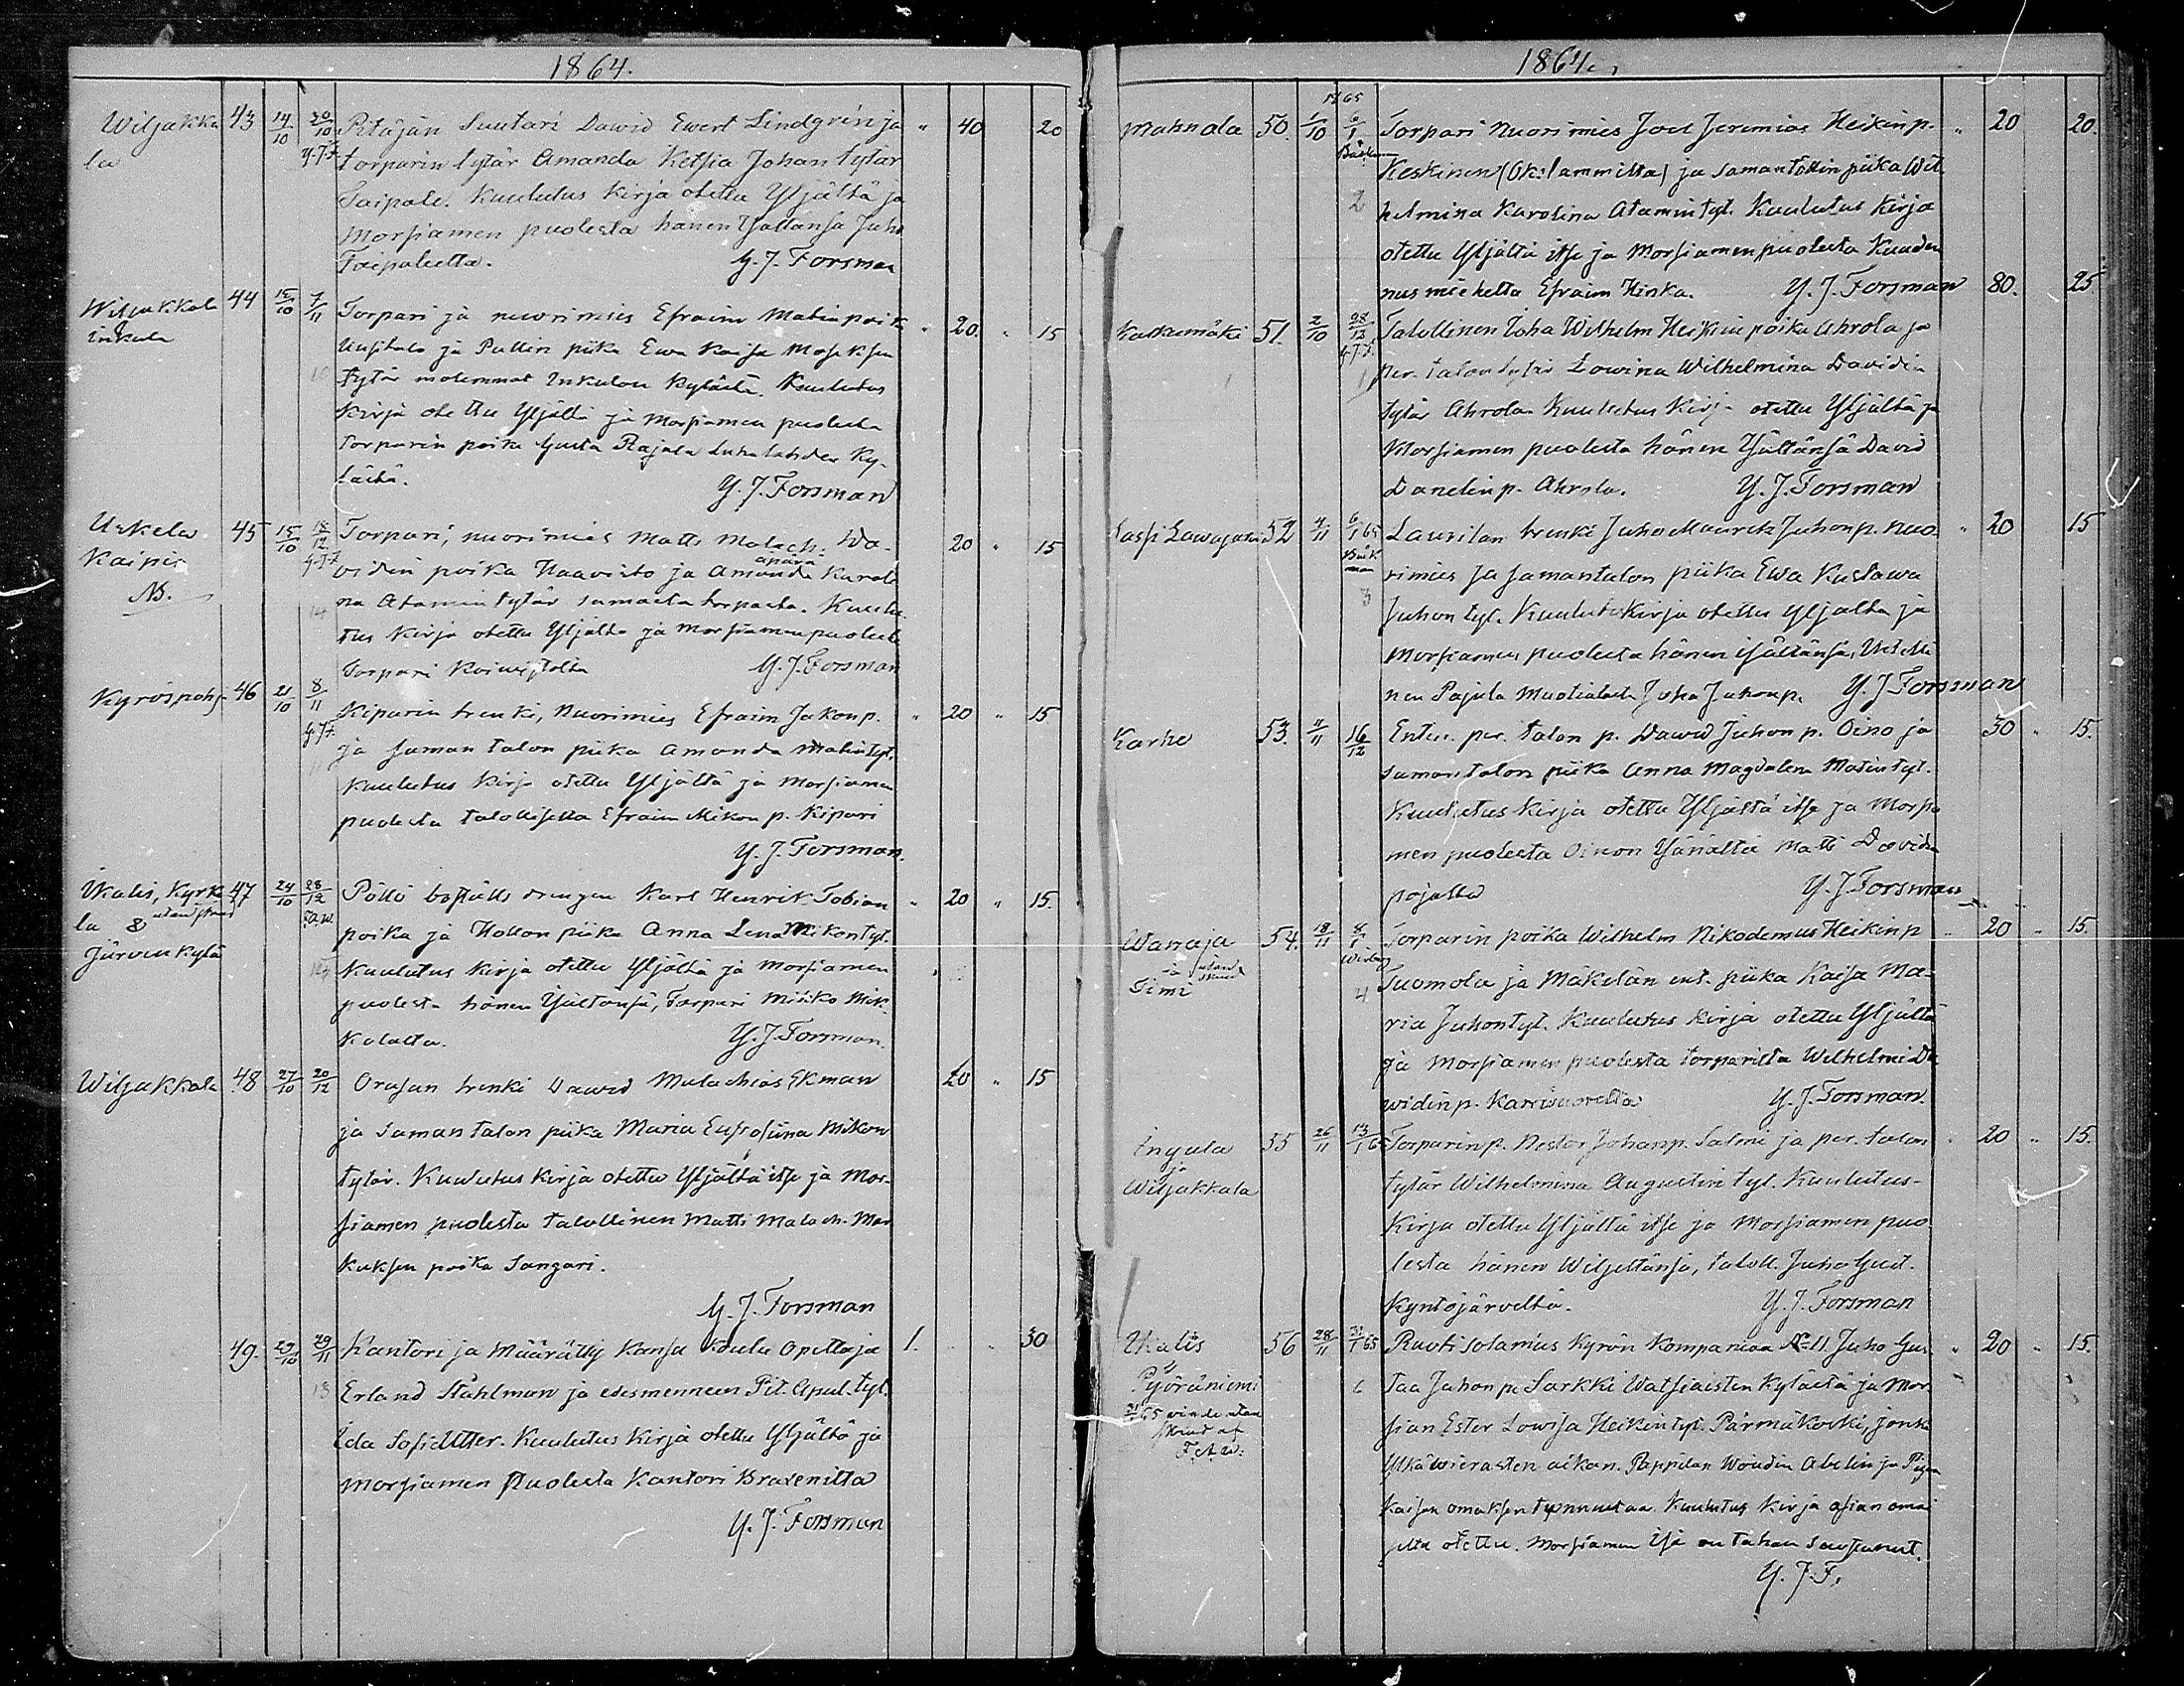 1864.
Wiljakka 43 14/10 20/10 Pitäjän Suutari Dawid Ewert Lindgrén ja " 40 20
la G.J.F. torparin tytär Amanda Ketsia Johan tytär
Saipale. Kuulutus kirja otettu Yljältä ja
Morsiamen puolesta hänen Isältänsä Juho
Taipaleelta. G. J. Forsman
Wiljakkala 44 15/10 7/11 Torpari ja nuorimies Efraim Matin poik " 20. " 15
inkula Uusitalo ja Pullin piika Ewa Kaisa Moseksen
10 tytär molemmat Inkulan kylästä. Kuulutus
kirja otettu Yljältä ja Morsiamen puolesta
torparin poika Gusta Rajala Luhalahden ky-
lästä. G. J. Forsman
Uskela 45 15/10 18/12 Torpari, nuorimies Matts Malach: Da- 20 " 15
Kaipio G.J.F. vidin poika Haavisto ja Amanda Karoli
NB. na Atamin tytär samasta torpasta. Kuulu
14 tus kirja otettu Yljältä ja Morsiamen puolest
Torpari Koivistolta G. J. Forsman
Kyröspohj 46 21/10 8/11 Kiparin trenki, Nuorimies Efraim Jakon p. " 20 " 15
G.J.F. ja saman talon piika Amanda Matintyt.
11 Kuulutus kirja otettu Yljältä ja Morsiamen
puolesta talolliselta Efraim Mikon p. Kipari
G. J. Forsman.
Ikalis, Kyrk 47 24/10 28/12 Pöllö boställs drengen Karl Henrik Tobian " 20 " 15.
la & utan skrud F.A.W. poika ja Hollon piika Anna Lena Mikontyt.
Järvenkylä Kuulutus kirja otettu Yljältä ja Morsiamen
puolesta hänen Isältänsä, Torpari Mikko Mik-
kolalta. G. J. Forsman.
Wiljakkala 48 27/10 20/12 Orasan trenki Dawid Malachias Ekman 20 " 15
ja saman talon piika Maria Eufrosiina Mikon
tytär. Kuulutus kirja otettu Yljältä itse ja Mor-
siamen puolesta talollinen Matti Malach. Mar
kuksen poika Sangari.
G. J. Forsman
49. 29/10 29/11 Kantori ja Määrätty Kansa Koulu Opettaja 1. " 30
13 Erland Ståhlman ja edesmenneen Pit. Apul. tyt.
Ida Sofia Utter. Kuulutus kirja otettu Yljältä ja
Morsiamen Puolesta Kantori Braxenilta
G. J. Forsman
1864.
1865
Mahnala 50. 1/10 6/1 Torpari Nuorimies Joel Jeremias Heikin p. " 20 20.
Bäckman Keskinen (Oksilammilta) ja saman töllin piika Wil
2 helmina Karolina Atamin tyt. Kuulutus kirja
otettu Yljältä itse ja Morsiamen puolesta Kuuden
nusmieheltä Efraim Hinka. G. J. Forsman 80. 25.
Kalkunmäki 51. 2/10 28/12 Talollinen Joha Wilhelm Heikin poika Ahrola ja
G.J.F. per. talon tytär Lowina Wilhelmina Davidin
1 tytär Ahrola. Kuulutus kirja otettu Yljältä ja
Morsiamen puolesta hänen Isältänsä David
Danelin p. Ahrola. G. J. Forsman
52 4/11 6/1 65 Laurilan trenki Juho Maurits Juhon p. Nuo- " 20 15
Bäckman rimies ja saman talon piika Ewa Kustawa
3 Juhon tyt. Kuulutuskirja otettu Yljältä ja
Morsiamen puolesta hänen isältänsä,
nen Pajula Muotialasta Juha Juhon p. G. J. Forsman
Karhe 53. 4/11 16/12 Enten. per. talon p. Dawid Juhon p. Oino ja 30 " 15.
saman talon piika Anna Magdalena Matin tyt.
Kuulutus kirja otettu Yljältä itse ja Morsia
men puolesta Oinon Isännältä Matti Davidin
pojalta G. J. Forsman
Wanaja 54. 18/11 8/1 Torparin poika Wilhelm Nikodemus Heikin p " 20 " 15.
ja utan skrud
Timi 4 Tuomola ja Mäkelän ent. piika Kaisa Ma-
ria Juhontyt. Kuulutus kirja otettu Yljältä
ja Morsiamen puolesta torparilta Wilhelmi Da
widin p. Karrisuorelta G. J. Forsman.
Ingula 55 26/11 13/1 65 Torparin p. Nestor Johanp. Salmi ja per. talon " 20 " 15.
ja
Wiljakkala tytär Wilhelmina Augustin tyt. Kuulutus-
kirja otettu Yljältä itse ja Morsiamen puo
lesta hänen Weljeltänsä, taloll. Juho Gust.
Kyntöjärveltä. G. J. Forsman
Ikalis 56 28/11 31/1 65 Ruotisotamies Kyrön Kompaniaa No 11 Juho Gus " 20 " 15.
Pyöräniemi 6 taa Juhon p. Sarkki Watsiaisten kylästä ja Mor
31/1 65 vigde utan skrud af F.A.W. sian Ester Lowisa Heikin tyt. Pärmäkoski, jonka
Ylkä wierasten aikan. Pappilan Woudin Abelin ja Piian
Kaisan omaksen tunnustaa. Kuulutus kirja asian omai
silta otettu. Morsiamen isä on tähän suostunut.
G. J. F.